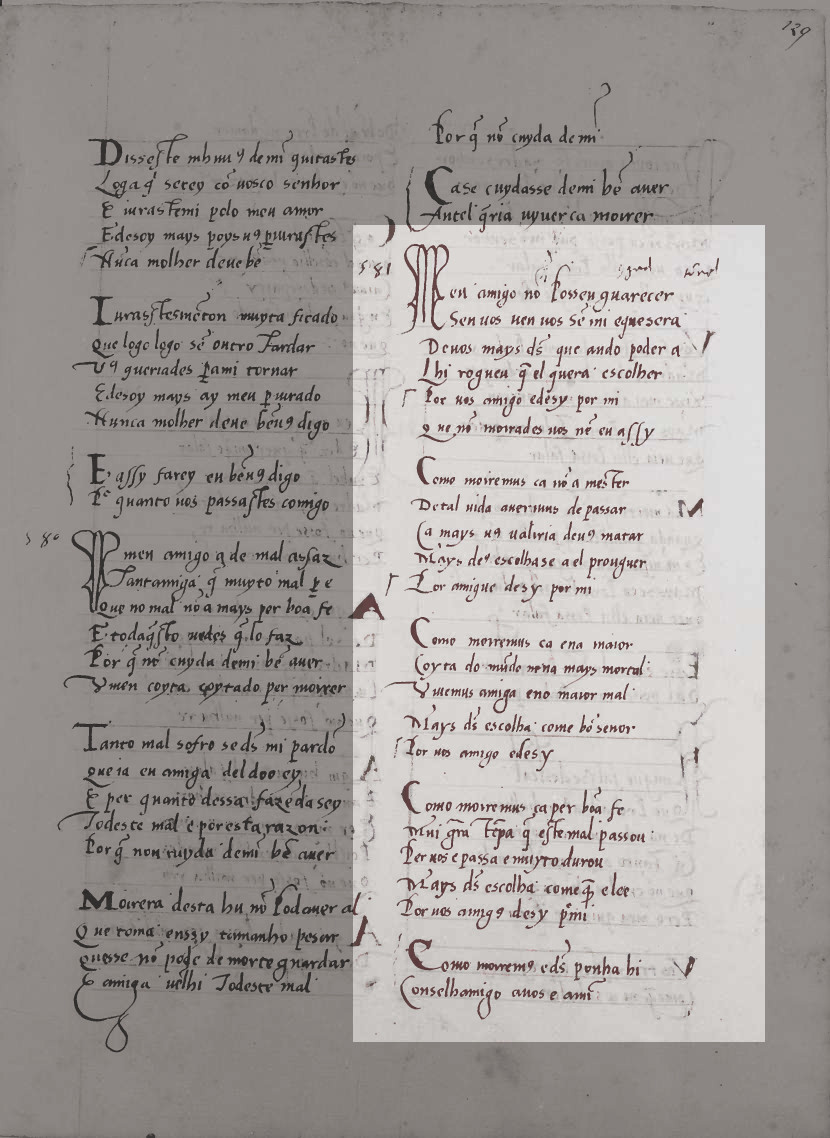 129
Disseste mh un9 de mi quitastes
Loga q̃ serey cõ uosco senhor
E iurastemi polo meu amor
E desoy mays poys u9 periurastes
Nũca molher deue bẽ
Iurastesmentõn muyta ficado
Que logo logo sẽ outro Tardar
V9 queriades p̱ ami tornar
E desoy mays ay meu p̱iurado
Nunca molher deue bẽ u9 digo
E assy farey eu bẽ u9 digo
Por quanto uos passastes comigo
580
meu amigo q̃ de mal assaz
Tant amiga q̃ muyto mal p̱ e
Que no mal nõ a mays per boã fe
E todaq̃sto uedes q̃ lo faz
Por q̃ nõ cuyda demi bẽ auer
Viuen coyta coytado per moirer
Tanto mal sofro se ds̃ mi pardõ
Que ia eu amiga del doo ey
E per quanto dessa fazẽda sey
Todeste mal e por esta razon
Por q̃ non cuyda demi bẽ auer
Moirera desta hu nõ Pod auer al
Que toma enssy tamanho pesar
Quesse nõ pode de morte guardar
E amiga uẽ lhi Todeste mal
Por q̃ nõ cuyda de mi
Ca se cuydasse demi bẽ auer
Antel q̃ria uyuer ca moirer
581
Meu amigo nõ Posseu guarecer
Sen uos nen uos sẽ mi e que sera
De uos mays ds̃ que ando poder a
Lhi rogueu q̃ el quera escolher
Por uos amigo e desy por mi
Que nõ moirades uos nẽ eu assy
Como moiremus ca nõ a mester
De tal uida auermus de passar
Ca mays u9 ualiria deu9 matar
Mays de9 escolha se a el prouguer
Por amigue desy por mi
Como moiremus ca ena maior
Coyta do mũdo nena mays mortal
Viuemus amiga eno maior mal
Mays ds̃ escolha come bõ senor
Por uos amigo e desy
Como moiremus ca per boã fe
Mui grã Tẽpa q̃ este mal passou
Per uos e passa e muyto durou
Mays ds̃ escolha come quẽ ele e
Por uos amig9 desy p̱ mi
Como moirem9 e ds̃ ponha hi
Conselh amigo a uos e a mi